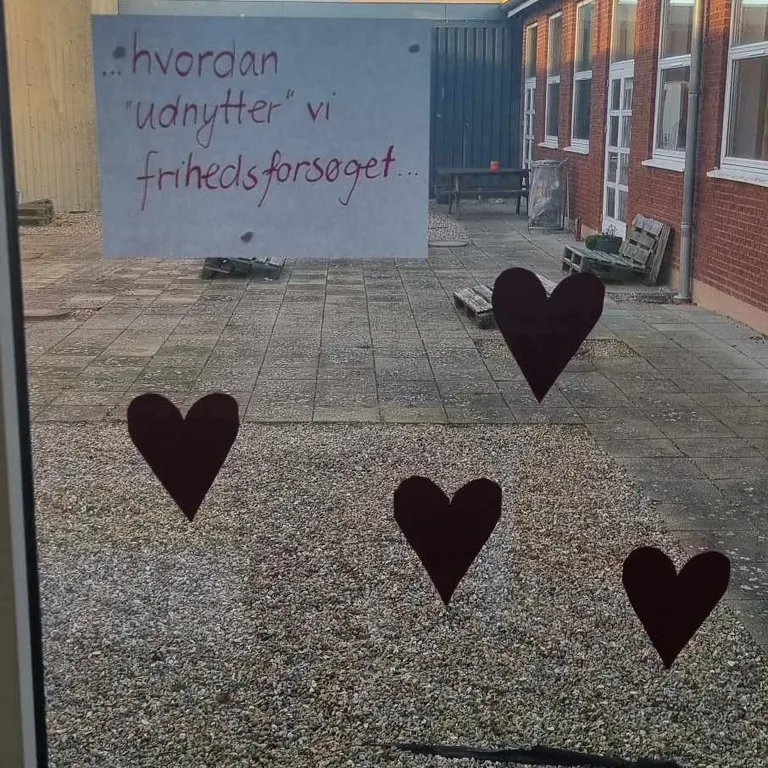 ...hvordan
"udnytter" vi
frihedsforsøget...